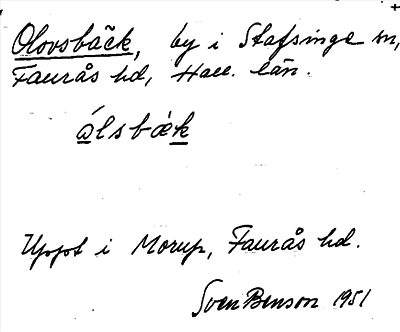 Olovsbäck, by i Stafsinge sn,
Faurås hd, Hall. län.
álsbæk
Uppt i Morup, Faurås hd.
Sven Benson 1951